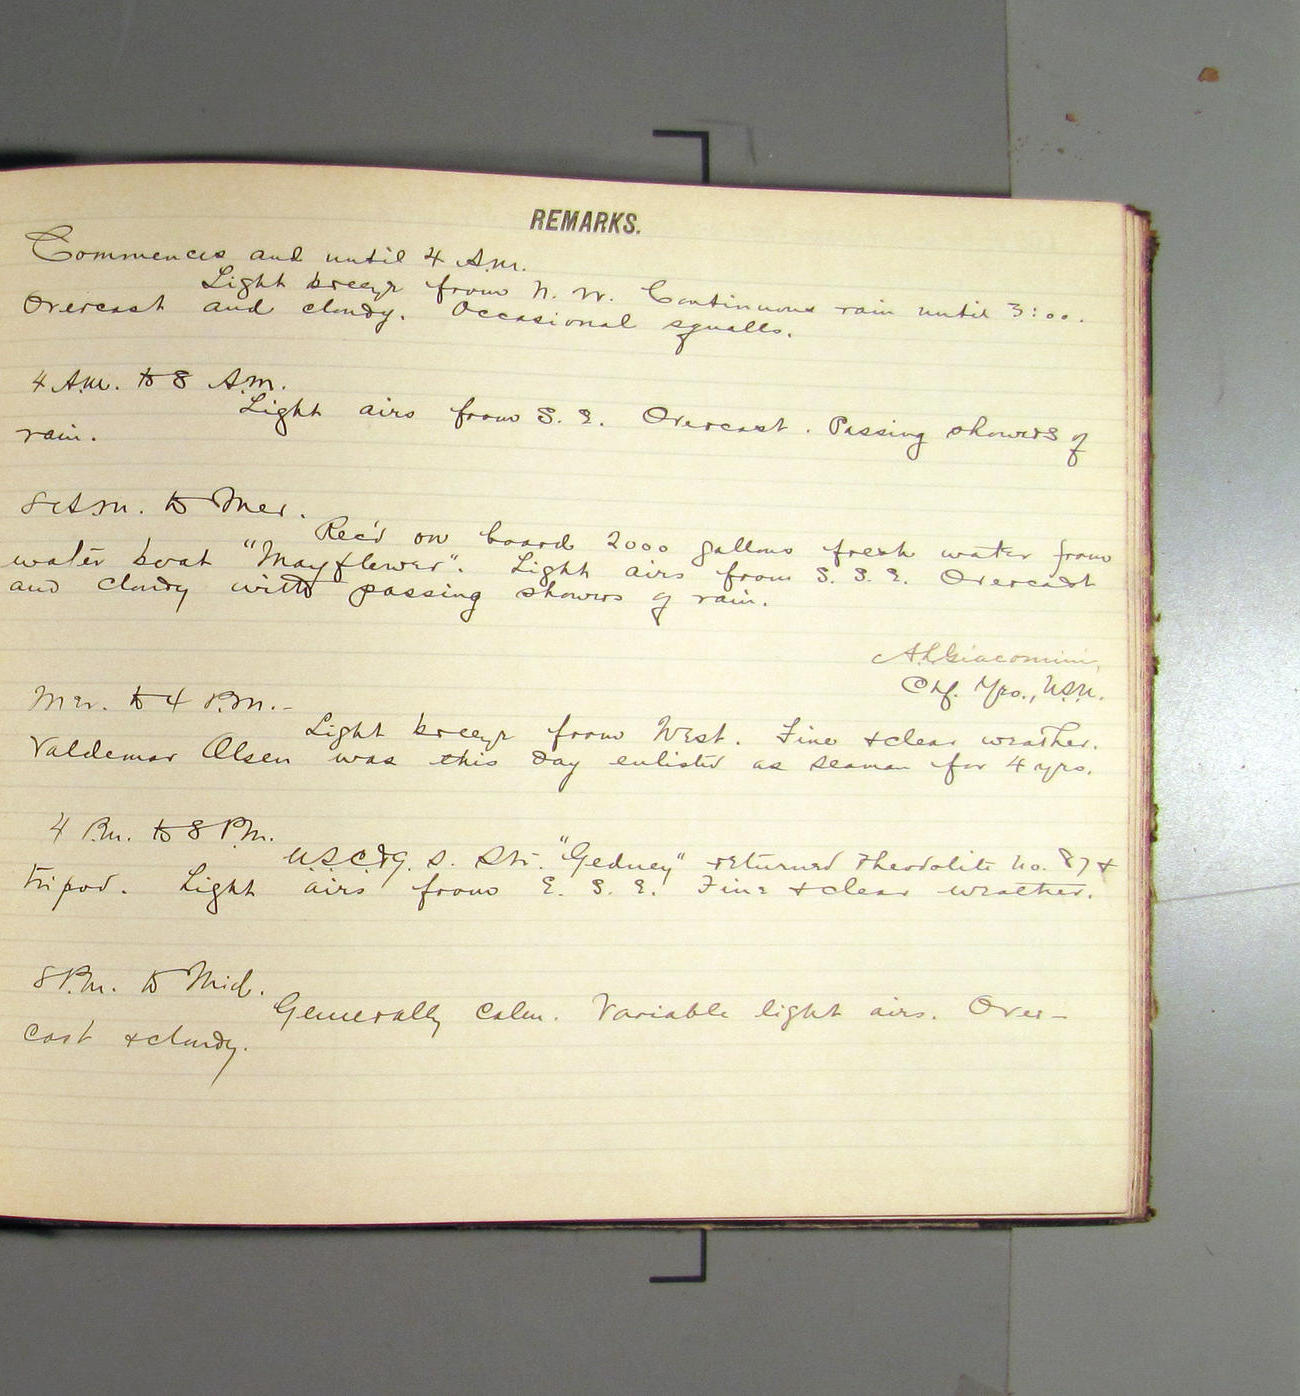 REMARKS.
Commences and until 4 A.m.
Light breeze from N. W. Continuous rain until 3:00.
Overcast and cloudy. Occasional squalls.
4 A.m. to 8 A.m.
Light airs from S. E. Overcast. Passing showers of
rain.
8 A.m. to Mer.
Rec'd on board 2000 gallons fresh water from
water boat "Mayflower". Light airs from S. S. E. Overcast
and cloudy with passing showers of rain.
A. L. Giacomini,
Chf. Yeo., U.S.N.
Mer. to 4 P.m.-
Light breeze from West. Fine & clear weather.
Valdemar Olsen was this day enlisted as seaman for 4 yrs.
4 P.m. to 8 P.m.
U.S.C.&G. S. Str. "Gedney" returned theodolite No. 87 &
tripod. Light airs from E. S. E. Fine & clear weather.
8 P.m. to Mid.
Generally calm. Variable light airs. Over-
cast & cloudy.